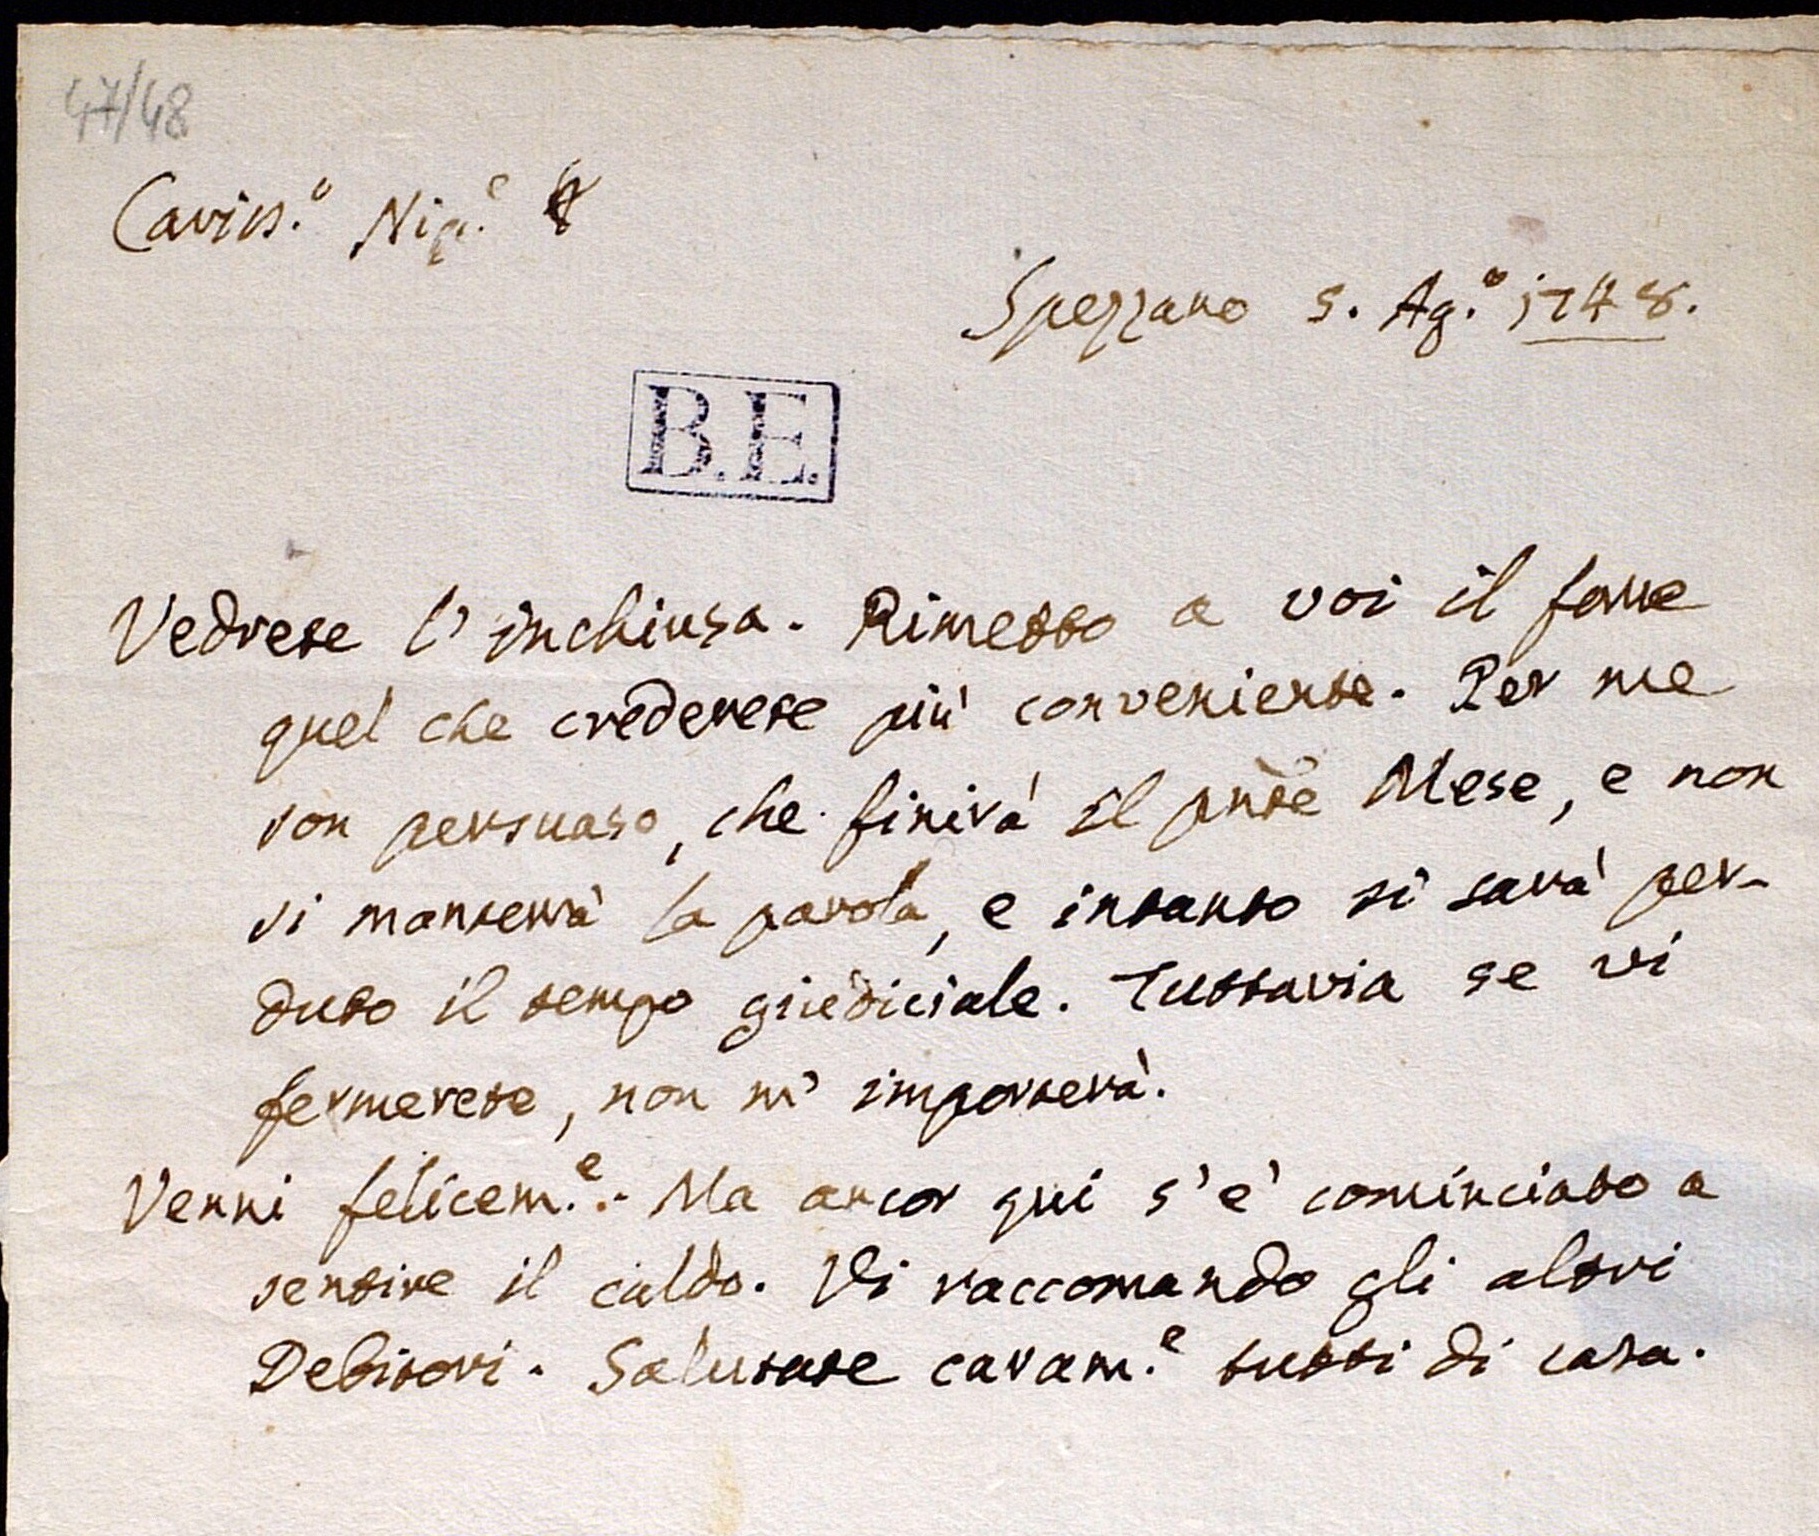 47/48
Cariss.º Nip.e
Spezzano 5. Ag.º 1748.
B.E.
Vedrete l'inchiusa. Rimetto a voi il farne
quel che crederete più conveniente. Per me
son persuaso, che finirà il pnte Mese, e non
si manterrà la parola, e intanto si sarà per-
duto il tempo giudiciale. Tuttavia se vi
fermerete, non m'importerà.
Venni felicem.e. Ma ancor qui s'è cominciato a
sentire il caldo. Vi raccomando gli altri
Debitori. Salutate caram.e tutti di casa.